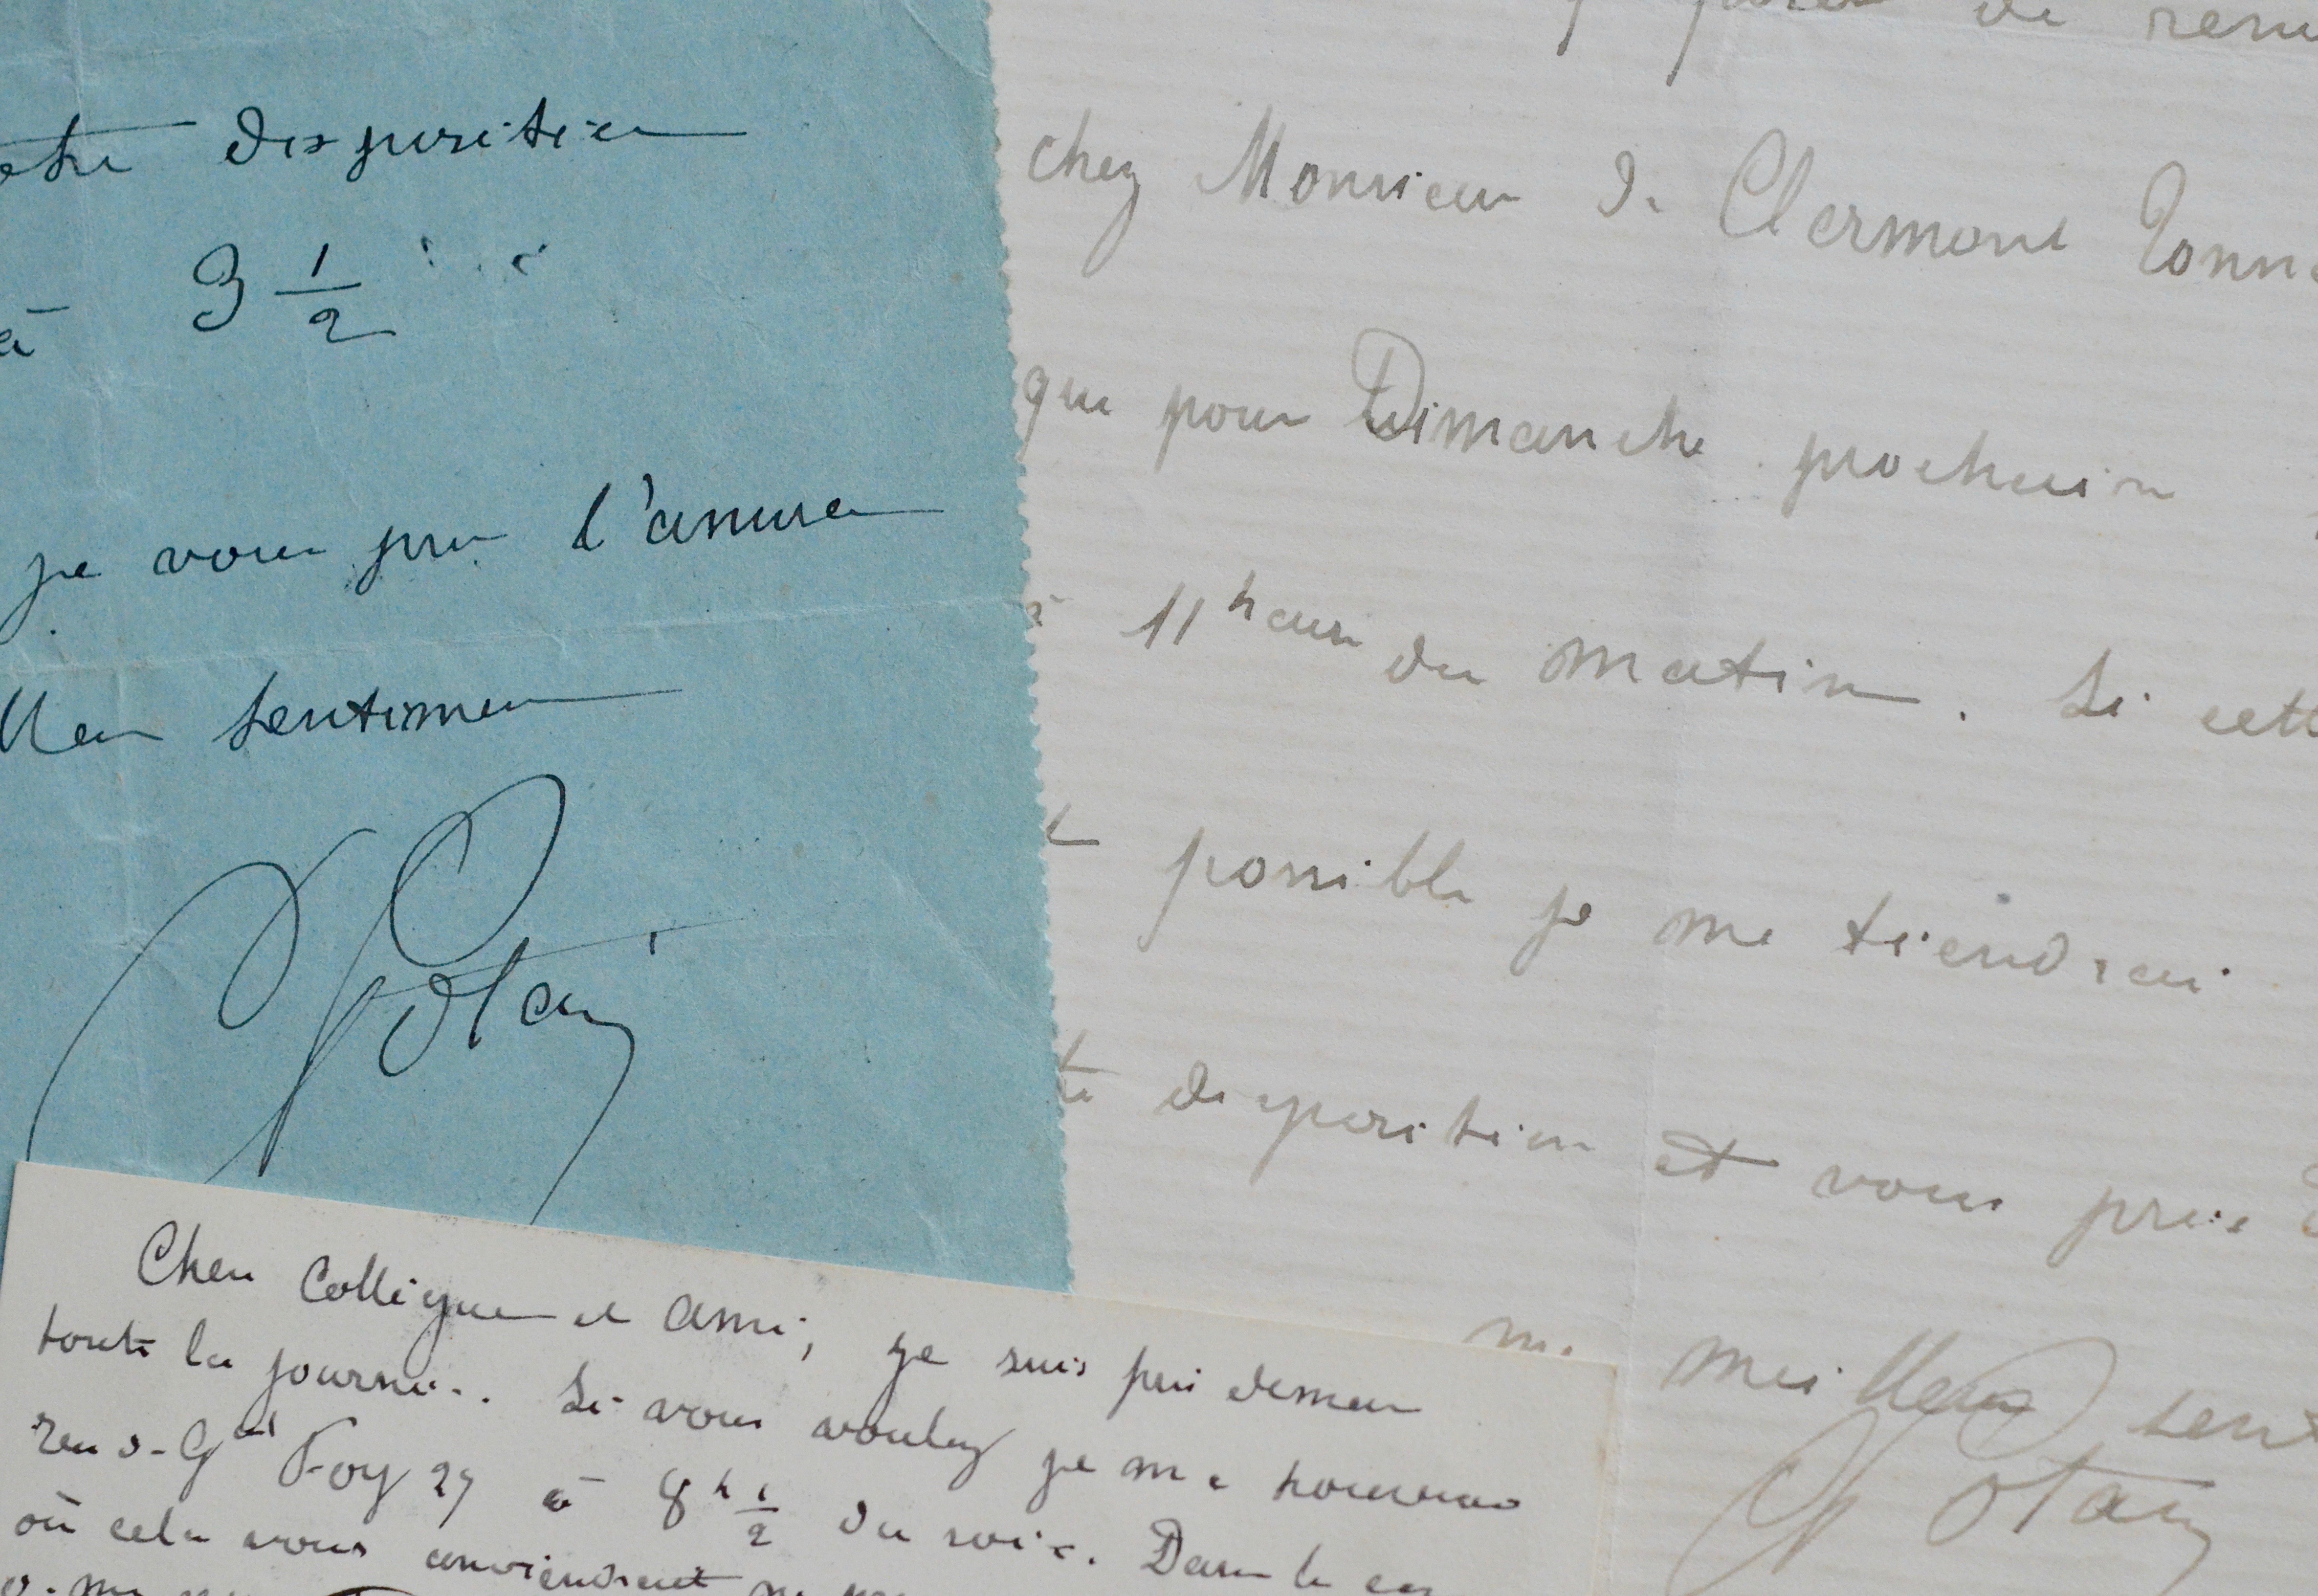 disposition
à 3 1/2
je vous prie l'assurance
sentiments
Potain
de
chez Monsieur de Clermont Tonne
que pour Dimanche prochain
à 11 heures du matin. Si cette
possible je me tiendrai
disposition et vous prie
meilleurs sent
Potain
Cher Collègue et ami, je suis pris demain
toute la journée. Si vous voulez je me trouverai
rue d. Gal Foy 27 à 8 h 1/2 du soir. Dans le cas
où cela vous conviendrait